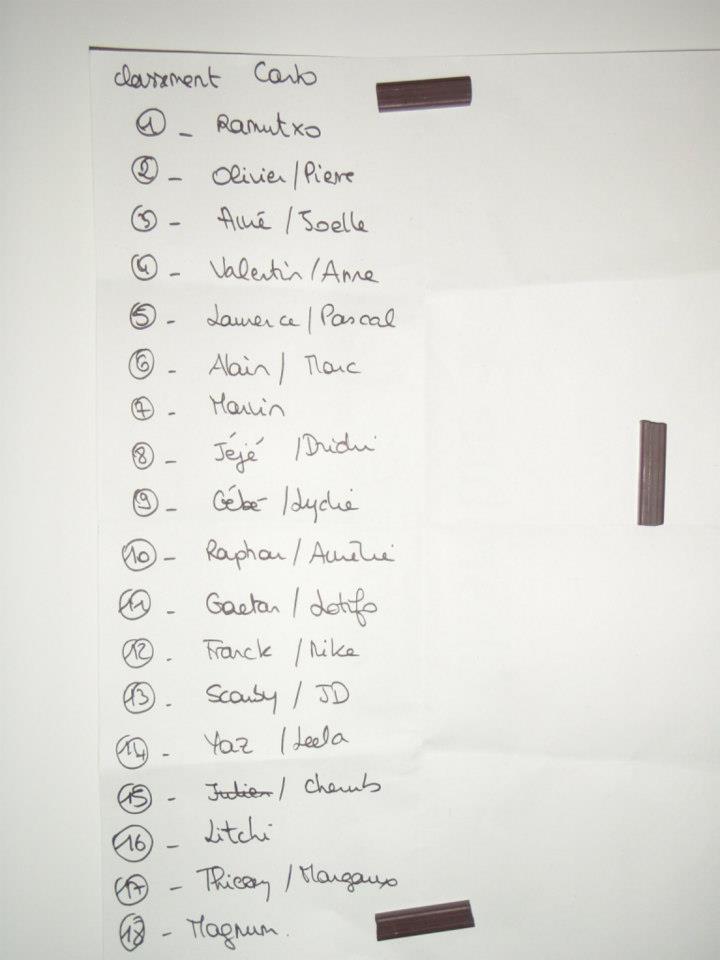 classement Carlo
1 - Ramutxo
2 - Olivier / Pierre
3 - Aimé / Joelle
4 - Valentin / Anne
5 - Laurence / Pascal
6 - Alain / Marc
7 - Marvin
8 - Jéjé / Dridri
9 - Gébé / Lydie
10 - Raphou / Aurélie
11 - Gaetan / Lotifo
12 - Franck / Mike
13 - Scouby / JD
14 - Yaz / Leela
15 - Julien / Cherub
16 - Litchi
17 - Thierry / Margaux
18 - Magnum.